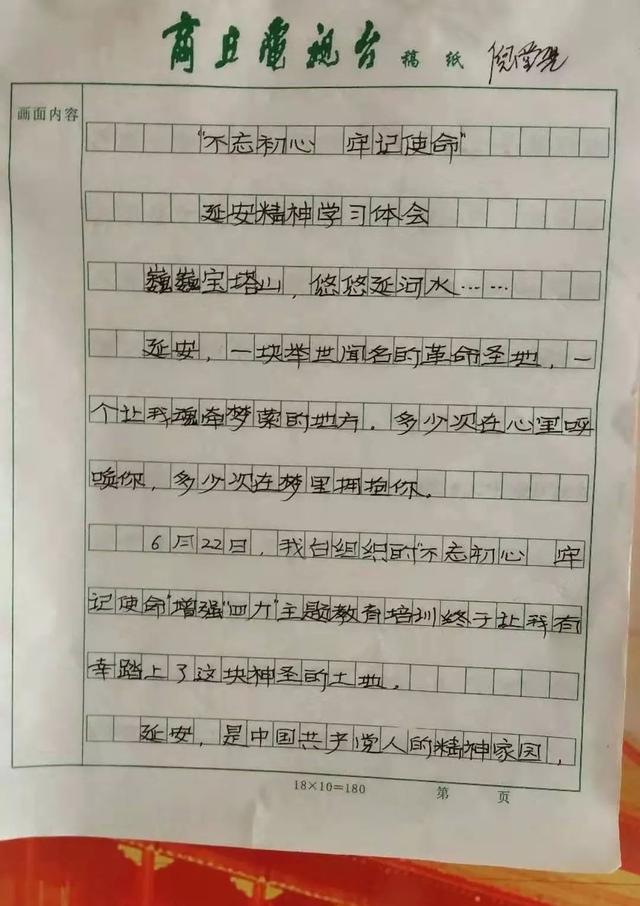 商丘电视台 稿纸
画面内容
"不忘初心 牢记使命"
延安精神学习体会
巍巍宝塔山，悠悠延河水……
延安，一块举世闻名的革命圣地，一
个让我魂牵梦萦的地方，多少次在心里呼
唤你，多少次在梦里拥抱你。
6月22日，我台组织的"不忘初心 牢
记使命"增强"四力"主题教育培训终于让我有
幸踏上了这块神圣的土地。
延安，是中国共产党人的精神家园，
18×10=180 第 页